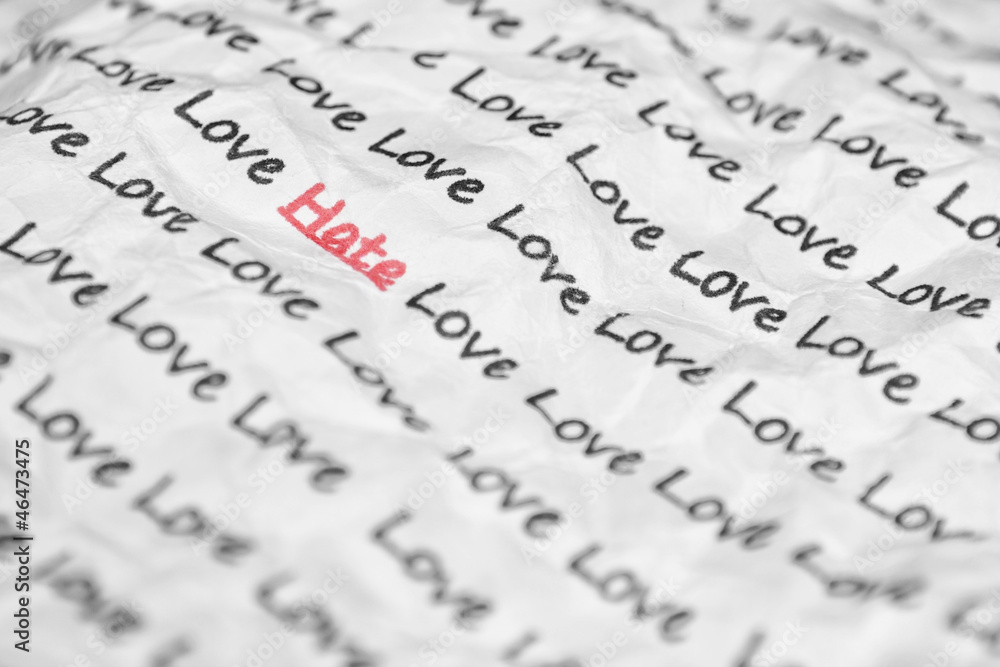 Love Love
Love Love Love
Love Love Love Love Love
Love Love Love Love Love Love
Love Love Love Love Love Love Love
Love Love Hate Love Love Love Love
Love Love Love Love Love Love
Love Love Love Love
Love Love Love
Love
Adobe Stock | #46473475